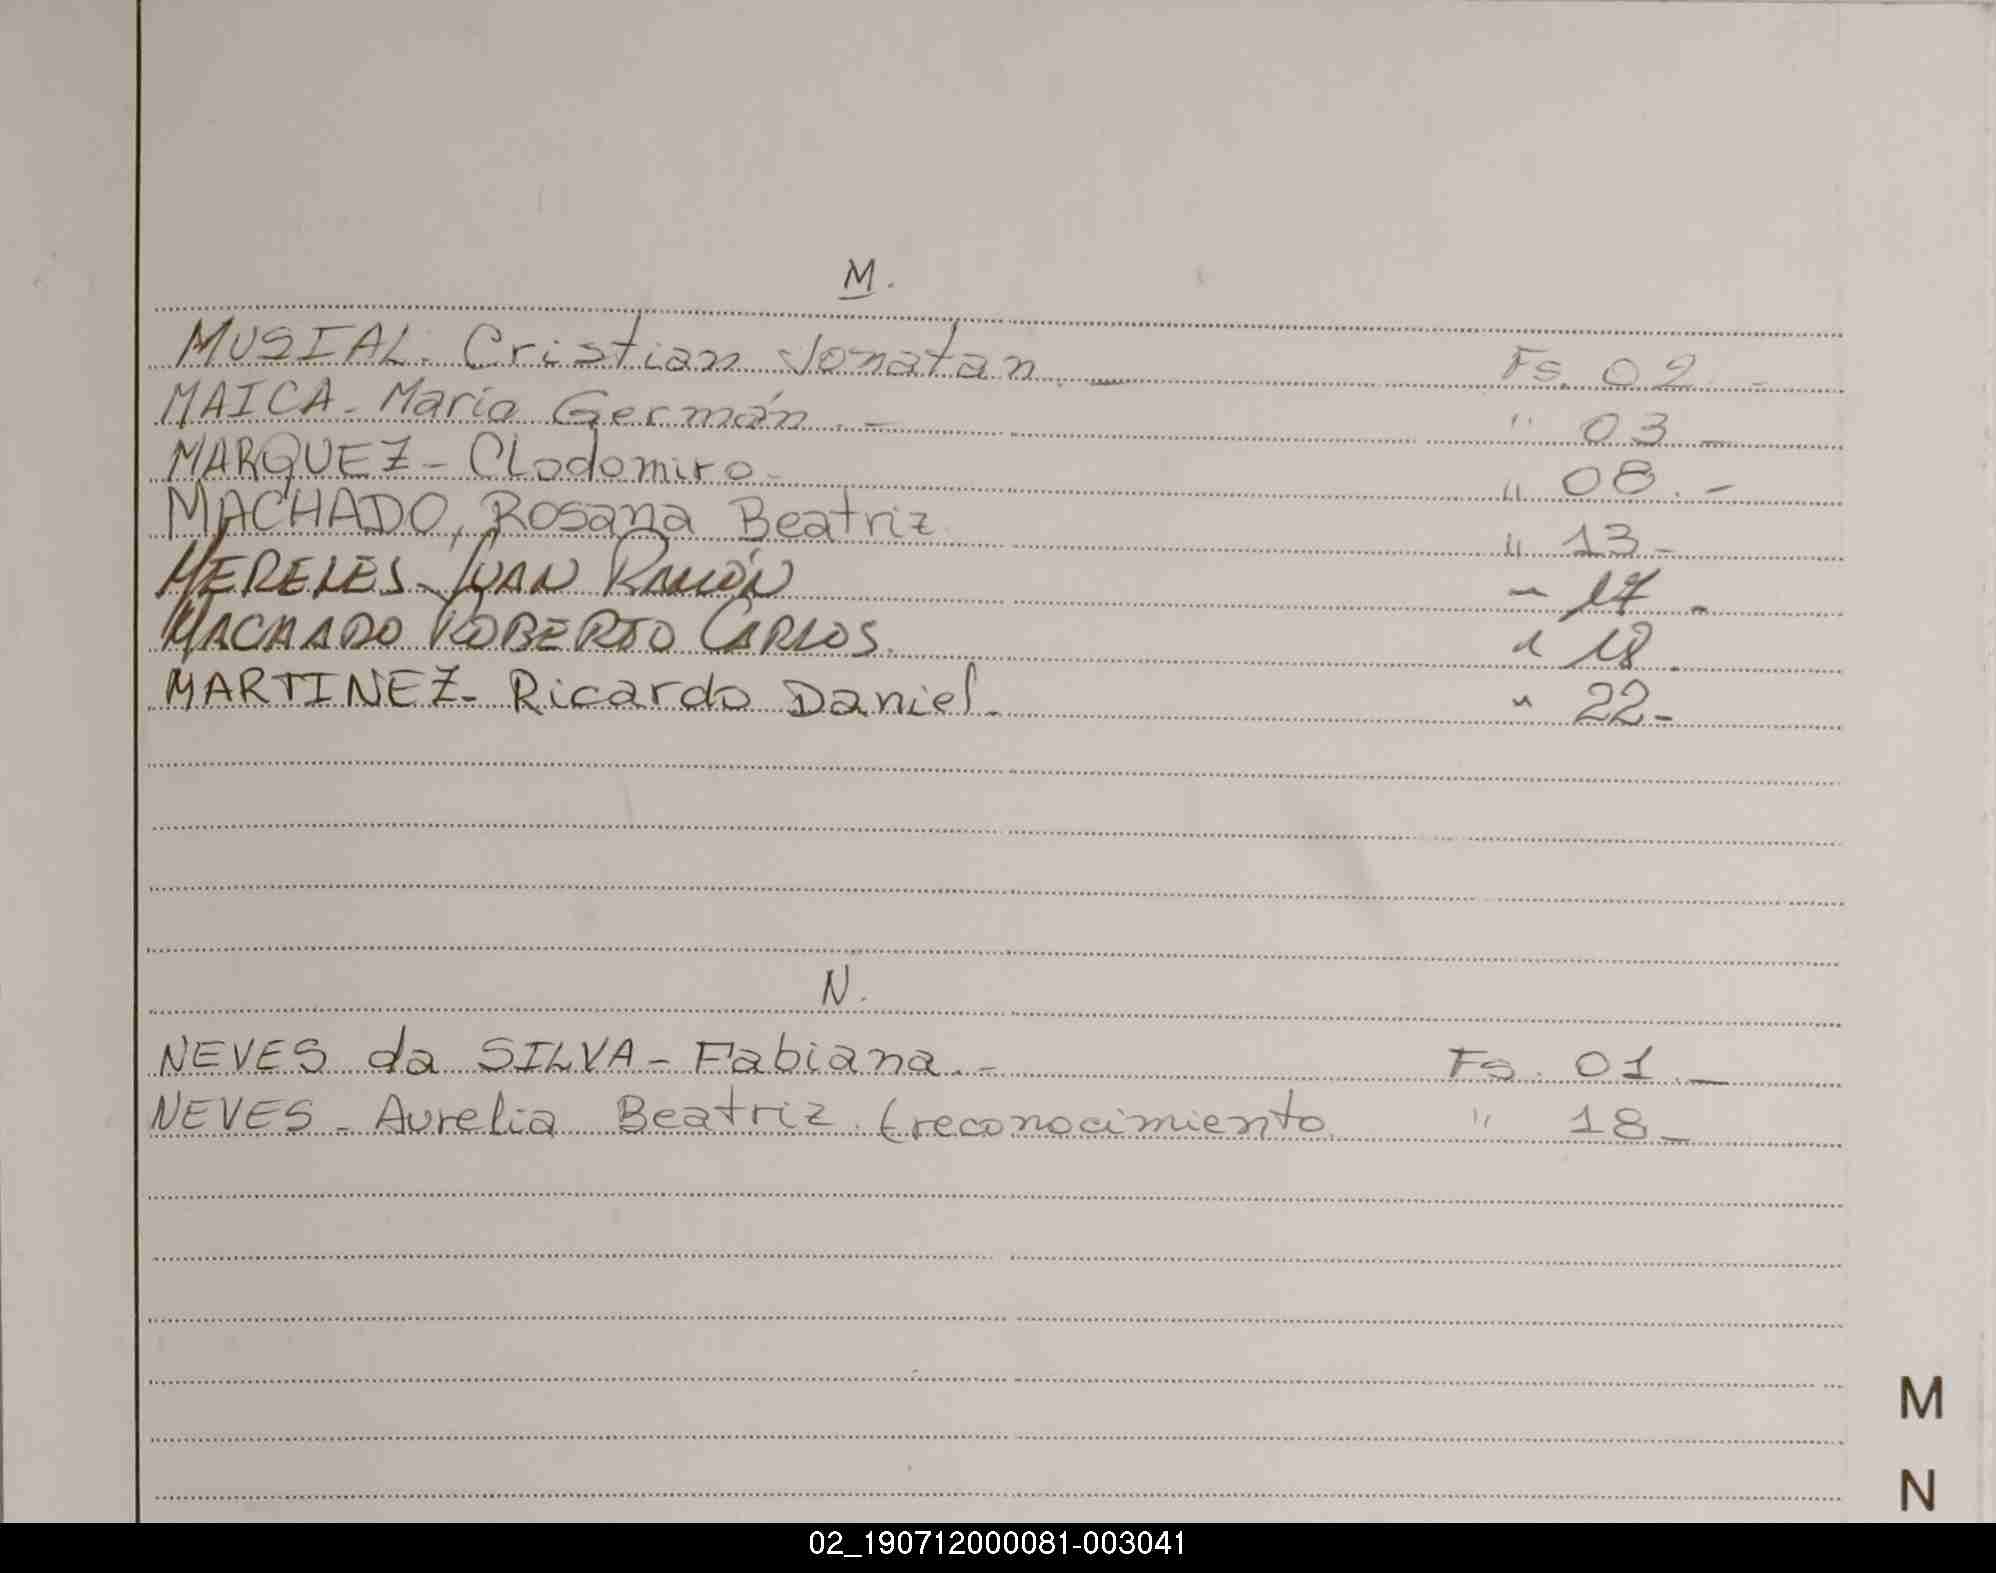 M.
MUSIAL. Cristian Jonatan. — Fs. 02. -
MAICA. Mario Germán. — " 03 -
MARQUEZ - CLodomiro - " 08. -
MACHADO, Rosana Beatriz " 13 -
MERELES - JUAN RAMÓN " 17 -
MACHADO ROBERTO CARLOS. " 18.
MARTINEZ - Ricardo Daniel. " 22 -
N.
NEVES da SILVA - Fabiana. - Fs. 01. —
NEVES - Aurelia Beatriz. (reconocimiento. " 18 -
M
N
02_190712000081-003041